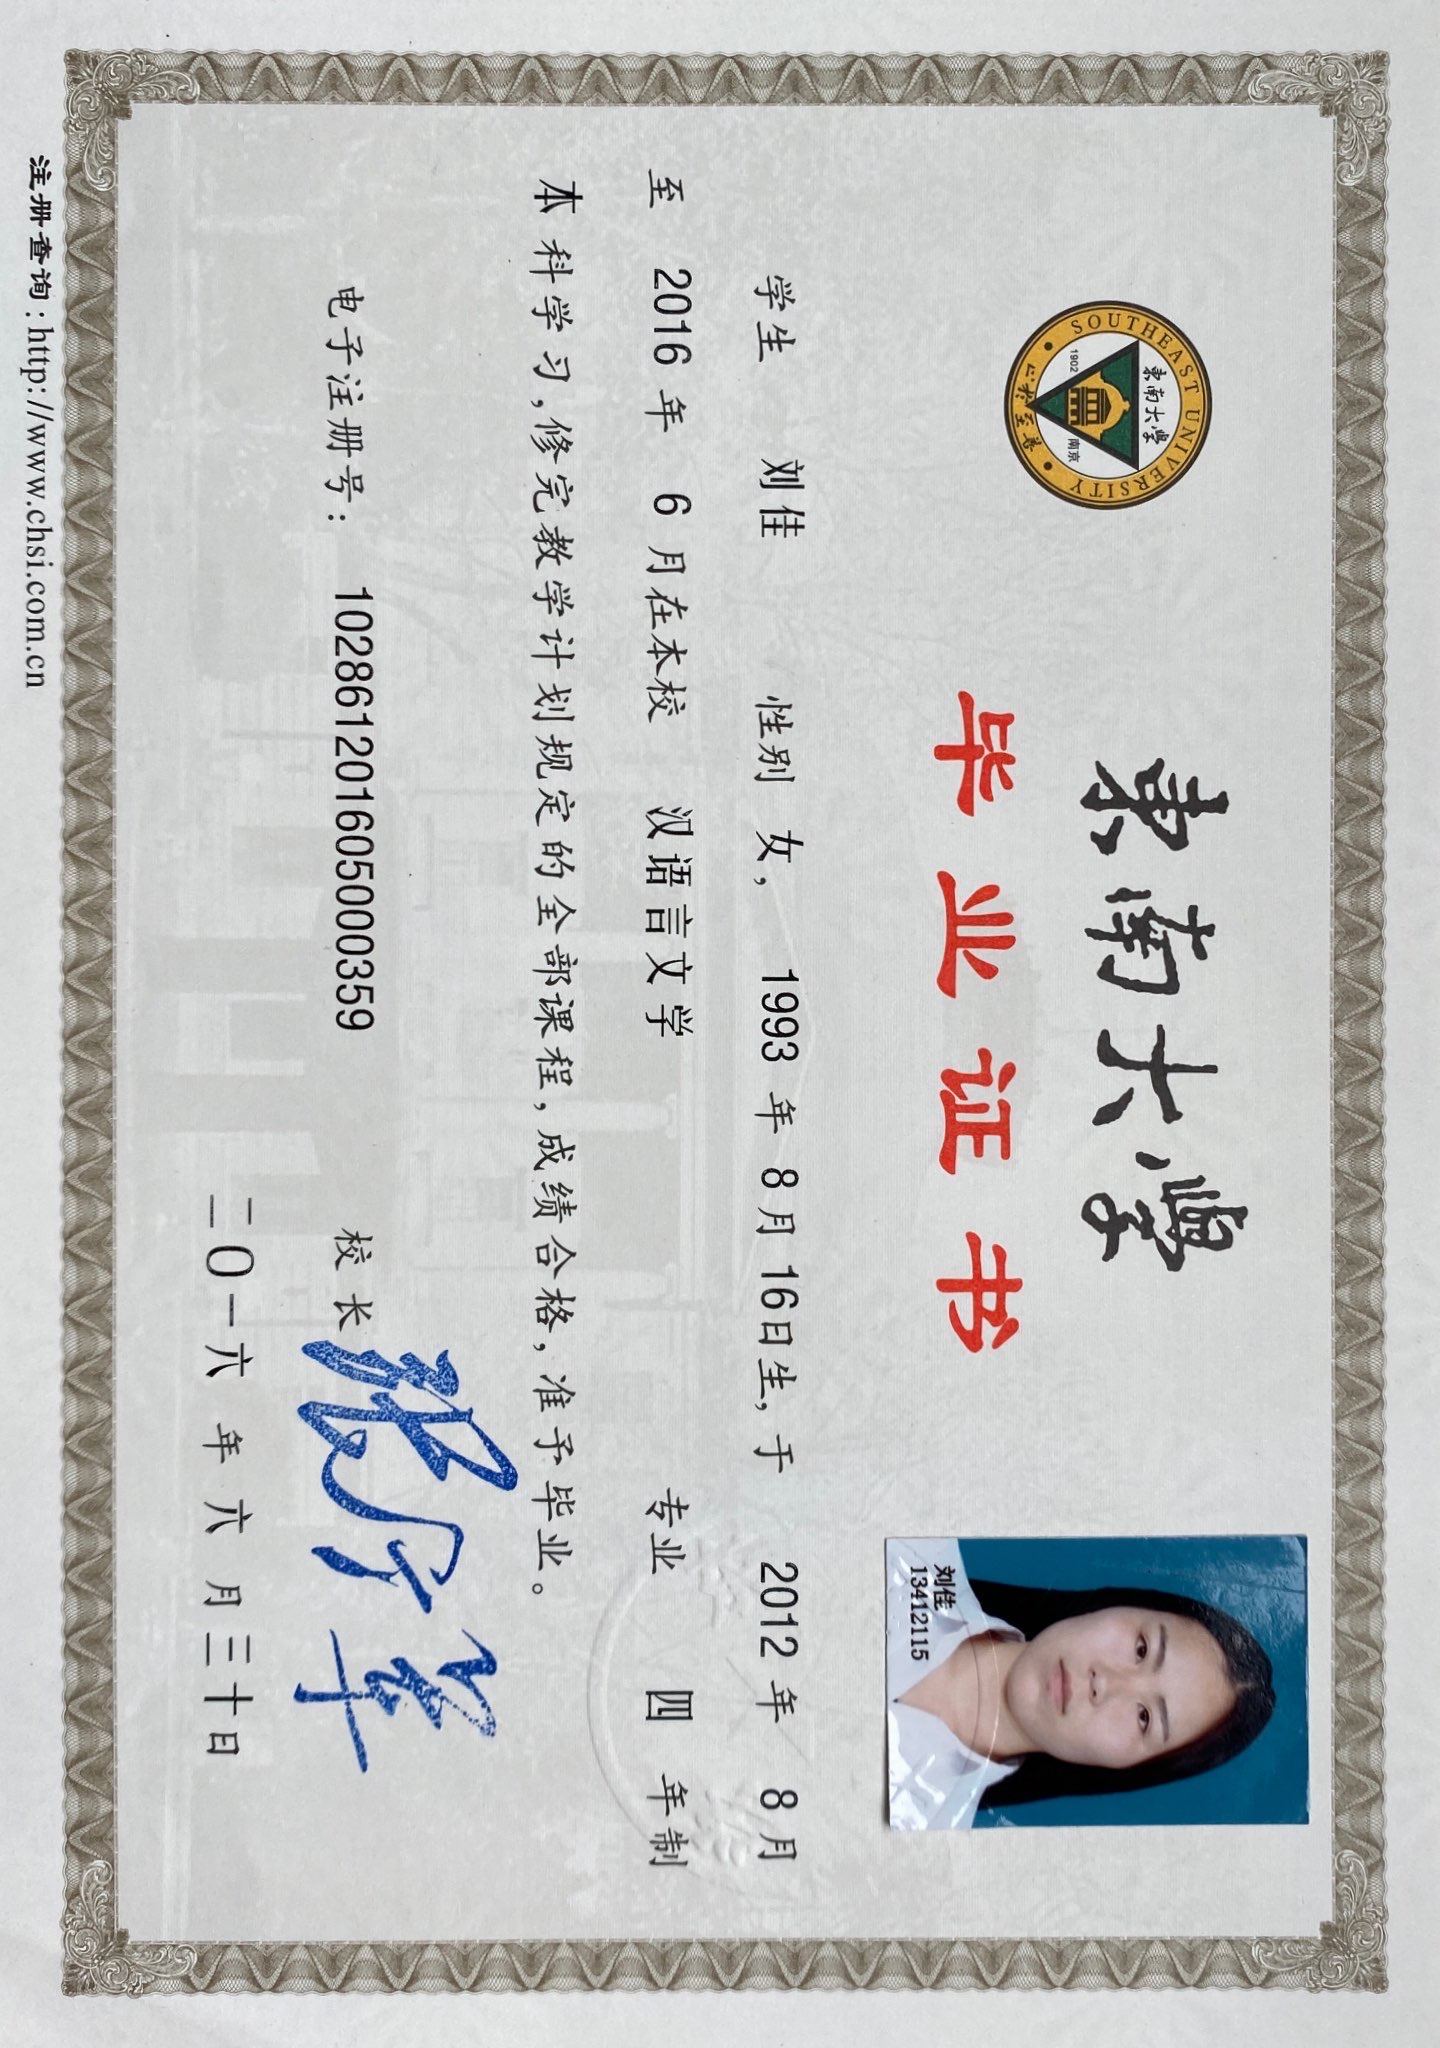 SOUTHEAST UNIVERSITY
东南大学
1902 南京
止於至善
东南大学
毕业证书
刘佳
13412115
学生 刘佳 性别 女， 1993 年 8 月 16日生，于 2012 年 8 月
至 2016 年 6 月在本校 汉语言文学 专业 四 年制
本科学习，修完教学计划规定的全部课程，成绩合格，准予毕业。
电子注册号： 102861201605000359 校长
二〇一六 年 六 月 三十日
注册查询：http://www.chsi.com.cn